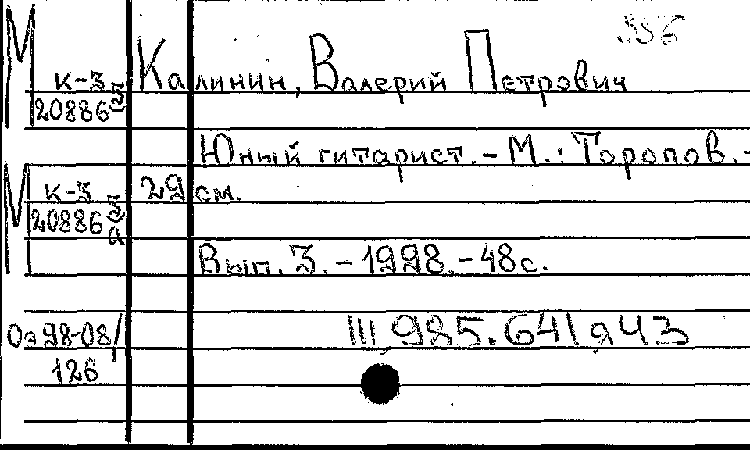 М
к-3 Калинин, Валерий Петрович
20886
Юный гитарист. - М. : Торопов. -
М
к-3 29 см.
20886
а
Вып. 3. - 1998. - 48 с.
Оз 98-08/
126
III 985.641я43